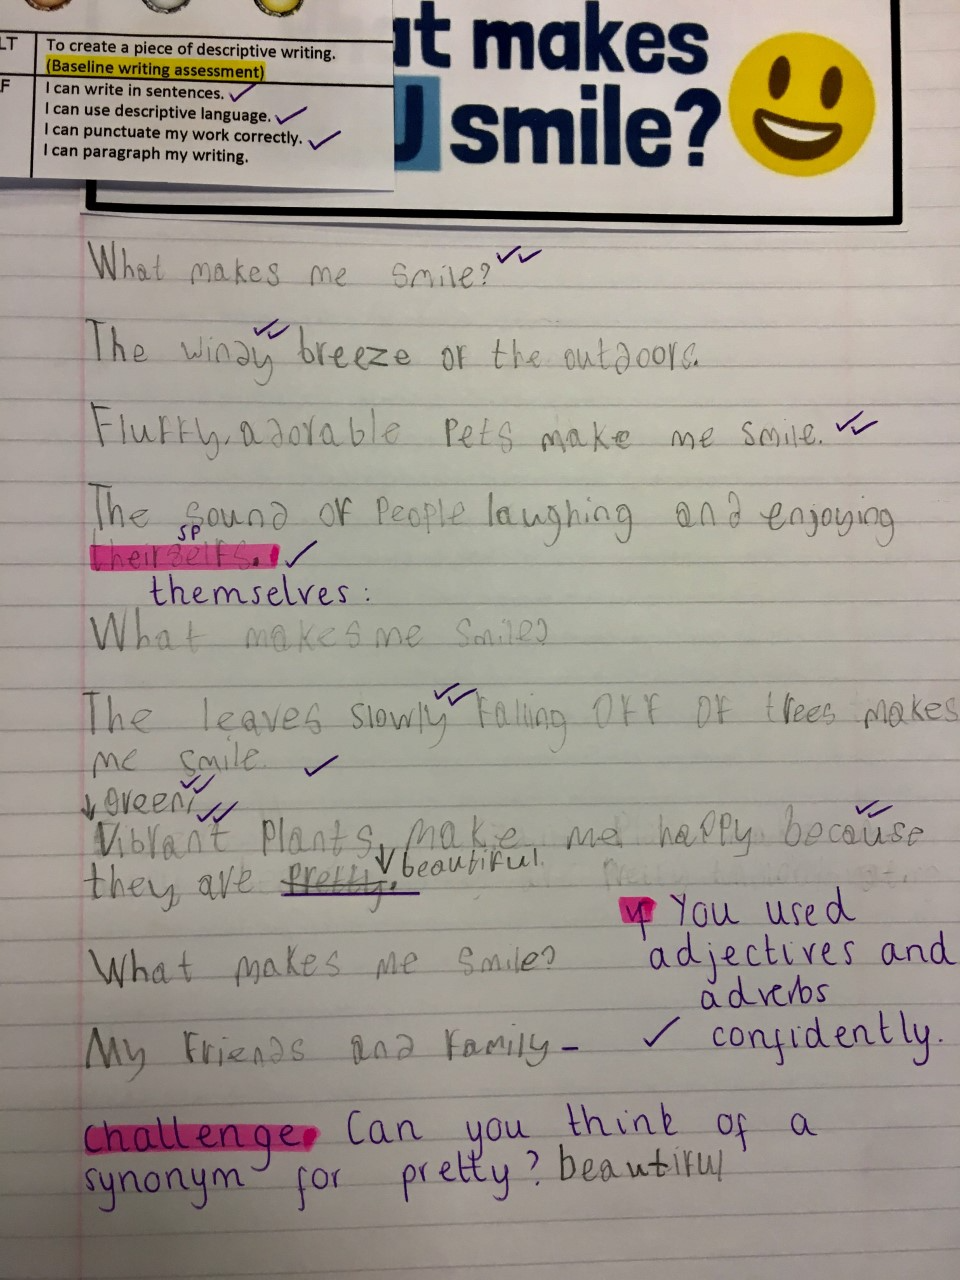 LT To create a piece of descriptive writing.
(Baseline writing assessment)
F I can write in sentences.
I can use descriptive language.
I can punctuate my work correctly.
I can paragraph my writing.
at makes
U smile?
What makes me smile?
The windy breeze of the outdoors.
Fluffy, adorable pets make me smile.
The sound of people laughing and enjoying
SP
theirselfs.
themselves:
What makes me smile?
The leaves slowly faling off of trees makes
me smile.
Green,
Vibrant plants, make me happy because
beautiful.
they are pretty.
What makes me smile?
You used
adjectives and
adverbs
confidently.
My friends and family-
challenge Can you think of a
synonym for pretty? beautiful